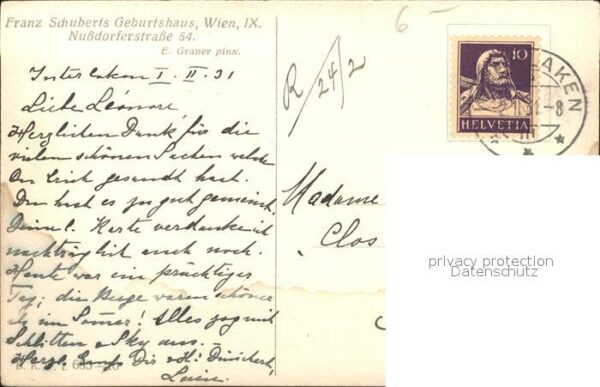 Franz Schuberts Geburtshaus, Wien, IX.
Nußdorferstraße 54.
E. Graner pinx.
6 —
R / 24/2
10
HELVETIA
LAKEN
Interlaken I. II. 31
Liebe Léonore
Herzlichen Dank für die
vielen schönen Sachen welche
Du Erich gesandt hast.
Du hast es zu gut gemeint.
Deine l. Karte verdanke ich
nachträglich auch noch.
Heute war ein prächtiger
Tag; die Berge waren schöner
als im Somer! Alles zog mit
Schlitten & Sky aus.
Herzl.
B. K. W. I.
Madame
Clos
privacy protection
Datenschutz